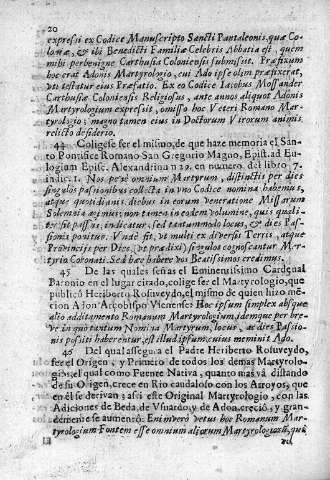 20
expressi ex Codice Manuscripto Sancti Pantaleonis, quæ Co-
loniæ, & ibi Benedicti Familiæ Celebris Abbatia est, quem
mihi perbenigne Carthusia Coloniensis submisit. Præfixum
hoc erat Adonis Martyrologio, cui Ado ipse olim præfixerat,
vti testatur eius Præfatio. Ex eo Codice Iacobus Mossander
Carthusiæ Coloniensis Religiosus, ante annos aliquot Adonis
Martyrologium expressit, omisso hoc Veteri Romano Mar-
tyrologio; magno tamen eius in Doctorum Virorum animis
relicto desiderio.
44 Coligese ser el mismo, de que haze memoria el San-
to Pontifice Romano San Gregorio Magno, Epist. ad Eu-
logium Episc. Alexandrina 29. en numero. del libro 7.
indict. 1. Nos penè omnium Martyrum, distinctis per dies
singulos passionibus collecta in vno Codice nomina habemus,
atque quotidianis diebus in eorum veneratione Missarum
Solemnia agimus; non tamen in eodem volumine, quis quali-
ter sit passus, indicatur, sed tantummodo locus, & dies Pas-
sionis ponitur. Vnde fit, vt multi ex diversis Terris, atque
Provincijs per Dies (vt prædixi) singulos cognoscantur Mar-
tyrio Coronati. Sed hæc habere vos Beatissimos credimus.
45 De las quales señas el Eminentissimo Cardenal
Baronio en el lugar citado, colige ser el Martyrologio, que
publicó Heriberto Rosiveydo, el mismo de quien hizo men-
cion Adon Arçobispo Vienense: Hoc ipsum simplex absque
alio additamento Romanum Martyrologium, idemque per bre-
ve in quo tantum Nomina Martyrum, locus, ac dies Passio-
nis positi haberentur, est illud ipsum, cuius meminit Ado.
46 Del qual assegura el Padre Heriberto Rosuveydo,
ser el Origen, y Primero de todos los demàs Martyrolo-
gios; el qual como Fuente Nativa, quanto mas và distando
de su Origen, crece en Rio caudaloso con los Arroyos, que
en èl se derivan; assi este Original Martyrologio, con las
Adiciones de Beda, de Vsuardo, y de Adon, creciò, y gran-
demente se aumentò: Enim verò vetus hoc Romanum Mar-
tyrologium Fontem esse omnium aliorum Martyrologiorũ, qui